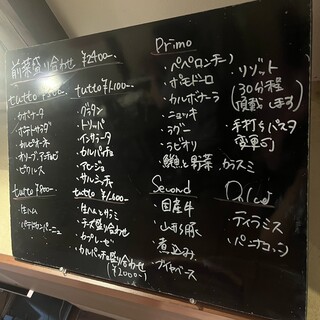 前菜盛り合わせ ¥2400-.
tutto
・カポナータ
・ポテトサラダ
・カルピオーネ
・オリーブ、アンチョビ
・ピクルス
tutto
・生ハム
・パテドカンパーニュ
tutto ¥1,100-.
・グラタン
・トリッパ
・インサラータ
・カルパッチョ
・サルシッチャ
tutto
・生ハムとサラミ
・チーズ盛り合わせ
・カプレーゼ
・カルパッチョ盛り合わせ
(¥2000-)
Primo
・ペペロンチーノ
・ポモドーロ
・カルボナーラ
・ニョッキ
・ラグー
・ラビオリ
・と野菜、カラスミ
・リゾット
(30分程
頂戴します)
・手打ちパスタ
変更可
Second
・国産牛
・山形豚
・煮込み
・ブイヤベース
Dolce
・ティラミス
・パンナコッタ